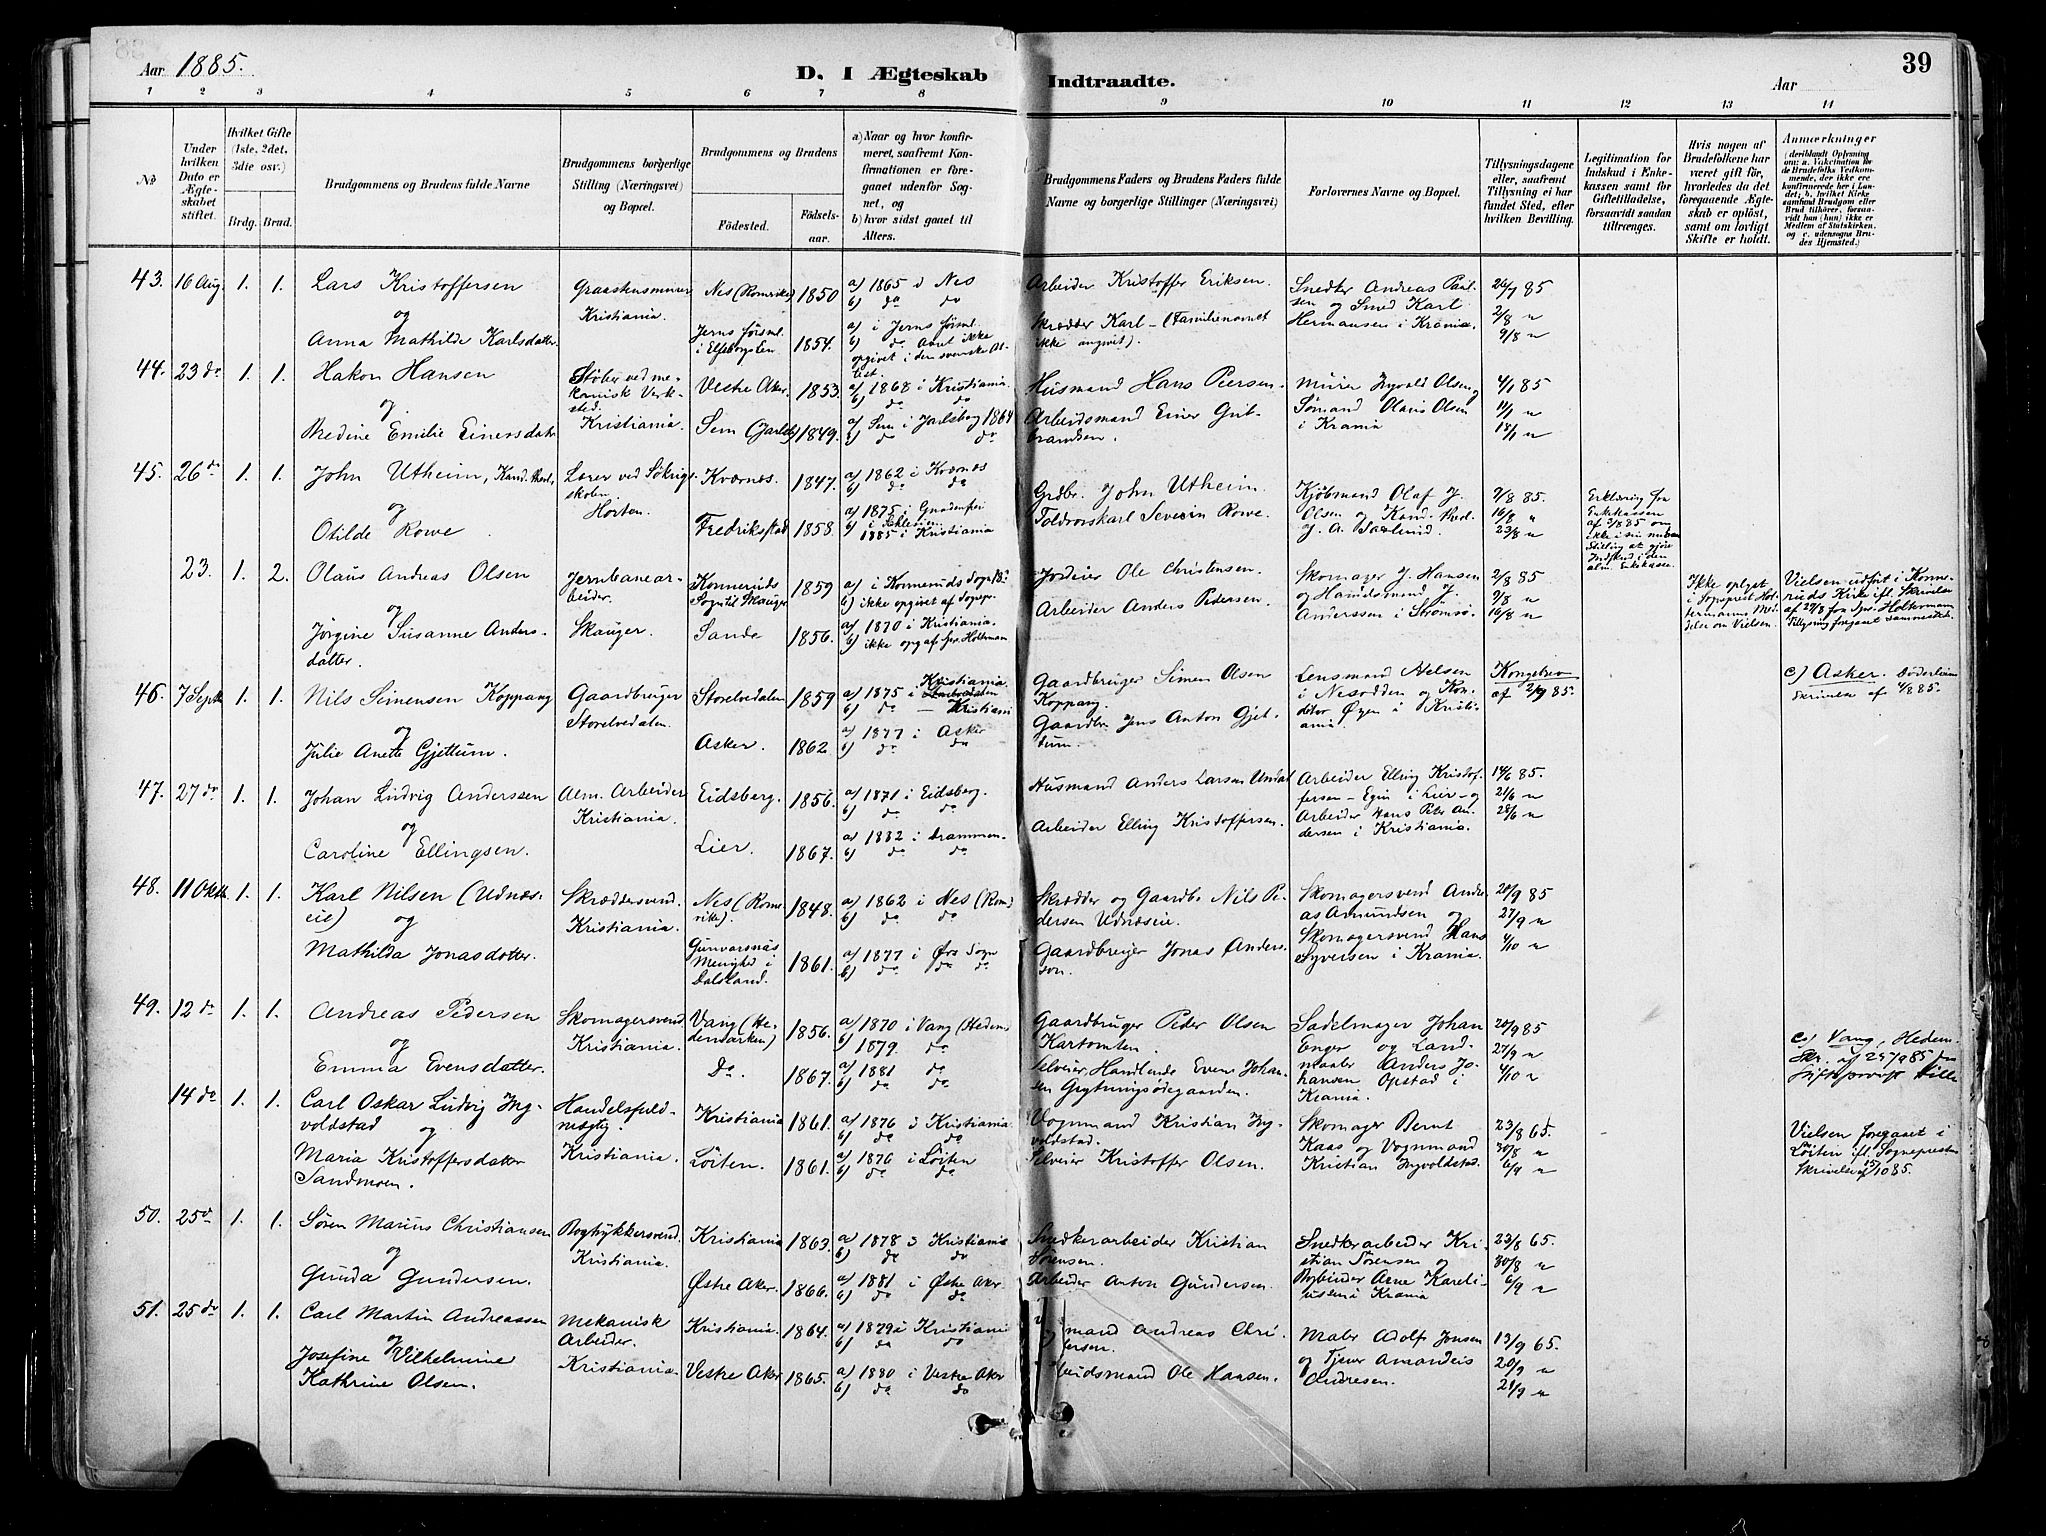 Aar 1885.
D. I Ægteskab Indtraadte.
Aar
39
1 2 3 4 5 6 7 8 9 10 11 12 13 14
No
Under hvilken Dato er Ægteskabet stiftet.
Hvilket Gifte (1ste, 2det, 3die osv.)
Brdg. Brud.
Brudgommens og Brudens fulde Navne
Brudgommens borgerlige Stilling (Næringsvei) og Bopæl.
Brudgommens og Brudens
Födested.
Födsels-aar.
a) Naar og hvor konfirmeret, saafremt Konfirmationen er foregaaet udenfor Sognet, og
b) hvor sidst gaaet til Alters.
Brudgommens Faders og Brudens Faders fulde Navne og borgerlige Stillinger (Næringsvei)
Forlovernes Navne og Bopæl.
Tillysningsdagene eller, saafremt Tillysning ei har fundet Sted, efter hvilken Bevilling.
Legitimation for Indskud i Enkekassen samt for Giftetilladelse, forsaavidt saadan tiltrænges.
Hvis nogen af Brudefolkene har været gift før, hvorledes da det foregaaende Ægteskab er opløst, samt om lovligt Skifte er holdt.
Anmærkninger
43. 16 Aug. 1. 1. Lars Kristoffersen
og
Anna Mathilde Karlsdatter.
Graastensmurer
Kristiania.
Nes (Romrike) 1850 a) 1865 i Nes
b) do do
Jerns forsml. i Elfsborgs len 1854. a) i Jerns forsml.
b) do Aaret ikke
opgivet i den svenske At-
test.
Arbeider Kristoffer Eriksen.
Skrædder Karl – (Familienavnet
ikke angivet).
Snedker Andreas Paul-
sen og Smed Karl
Hermansen i Krania.
26/7 85
2/8 "
9/8 "
44. 23 do 1. 1. Hakon Hansen
og
Thedine Emilie Einersdatr
Støber ved me-
kanisk Verk-
sted.
Kristiania.
Vestre Aker. 1853. a) 1868 i Kristiania.
b) do do
Sem (Jarlsbg) 1849. a) Sem i Jarlsberg 1864
b) do do
Husmand Hans Peersen.
Arbeidsmand Einer Gul-
brandsen.
Murer Ingvald Olsen og
Sømand Olaus Olsen
i Krania
4/1 85
11/1 "
18/1 "
45. 26 do 1. 1. John Utheim, Kand. theol.
og
Otilde Rowe
Lærer ved Søkrigs-
skolen.
Horten.
Kværnes. 1847. a) 1862 i Kværnes
b) do do
Fredrikstad 1858. a) 1875 i Gnadenfrei
i Schlesien.
b) 1885 i Kristiania
Grdbr. John Utheim.
Toldrorskarl Severin Rowe.
Kjøbmand Olaf J.
Olsen og Kand. theol.
J. A. Saxlund.
9/8 85.
16/8 "
23/8 "
Erklæring fra
Enkekassen
af 3/8 85 om
ikke i sin nuvær.
Stilling at gjøre
Indskud i den
alm. Enkekasse.
23. 1. 2. Olaus Andreas Olsen
og
Jørgine Susanne Anders-
datter.
Jernbanear-
beider.
Skauger.
Konneruds
Sogn til Skauger 1859 a) i Konneruds Sogn
b) ikke opgivet af Sognepr.
Sande 1856. a) 1870 i Kristiania.
b) ikke opg af Spr. Holtermann
Jordeier Ole Christensen.
Arbeider Anders Pedersen.
Skomager J. Hansen
og Handelsmand J.
Anderssen i Strømsø
2/8 85
9/8 "
16/8 "
Ikke oplyst
i Sogneprest Hol-
termanns Med-
delse om Vielsen.
Vielsen udført i Konne-
ruds Kirke ifl. Skrivelse
af 27/8 fra Spr. Holtermann
Tillysning foregaaet sammesteds.
46. 7 Septb 1. 1. Nils Simensen Koppang
og
Julie Anette Gjettum.
Gaardbruger
Storelvedalen.
Storelvedalen 1859 a) 1875 i Kristiania
b) do – Kristiania
Asker. 1862. a) 1877 i Asker
b) do do
Gaardbruger Simen Olsen
Koppang.
Gaardbr. Jens Anton Gjet-
tum.
Lensmand Nelsen
i Nesodden og Kon-
ditor Øyen i Kristi-
ania.
Kongebrev
af 2/9 85.
c) Asker.
47. 27 do 1. 1. Johan Ludvig Anderssen
og
Caroline Ellingsen.
Alm. Arbeider
Kristiania.
Eidsberg. 1856. a) 1871 i Eidsberg.
b) do do
Lier. 1867. a) 1882 i Drammen.
b) do do
Husmand Anders Larsen
Arbeider Elling Kristoffersen.
Arbeider Elling Kristof-
fersen – Egün i Lier – og
Arbeider Hans Peter An-
dersen i Kristiania.
14/6 85.
21/6 "
28/6 "
48. 11 Oktb. 1. 1. Karl Nilsen (Udnæs-
eie) og
Mathilda Jonasdotter.
Skræddersvend.
Kristiania.
Nes (Rome-
rike). 1848. a) 1862 i Nes (Rom)
b) do do
Gunnarsnäs
Menighed i
Dalsland. 1861. a) 1877 i Øra Sogn
b) do do do
Skrædder og Gaardbr. Nils Pe-
dersen Udnæseie.
Gaardbruger Jonas Anders-
son.
Skomagersvend Andre-
as Amundsen og
Skomagersvend Hans
Syversen i Krania.
20/9 85
27/9 "
4/10 "
49. 12 do 1. 1. Andreas Pedersen
og
Emma Evensdatter.
Skomagersvend
Kristiania.
Vang (He-
demarken) 1856. a) 1870 i Vang (Hedem)
b) 1879. do
Do. 1867. a) 1881 do
b) do do
Gaardbruger Peder Olsen
Kartomten.
Selveier, Handlende Even Johan-
sen Grytningsødegaarden.
Sadelmager Johan
Enger og Land-
maaler Anders Jo-
hansen, Opstad i
Krania.
20/9 85
27/9 "
4/10 "
c) Vang, Hedem.
Skr. af 25/9 85 fra
Stiftsprovst Hille
14 do 1. 1. Carl Oskar Ludvig Ing-
voldstad og
Maria Kristoffersdatter
Sandmoen.
Handelsfuld-
mægtig.
Kristiania.
Kristiania 1861. a) 1876 i Kristiania.
b) do do
Löiten. 1861. a) 1876 i Löiten
b) do do
Vognmand Kristian Ing-
voldstad.
Selveier Kristoffer Olsen.
Skomager Bernt
Kaas og Vognmand
Kristian Ingvoldstad.
23/8 65.
30/8 "
6/9 "
Vielsen foregaaet i
Löiten ifl. Sogneprestens
Skrivelse 15/10 85.
50. 25 do 1. 1. Søren Marius Christiansen
og
Gunda Gundersen.
Bogtrykkersvend.
Kristiania.
Kristiania 1863. a) 1878 i Kristiania
b) do do
Østre Aker. 1866. a) 1881 i Østre Aker.
b) do do
Snedkerarbeider Kristian
Sörensen.
Arbeider Anton Gundersen.
Snedkerarbeider Kri-
stian Sörensen og
Arne Kareli-
ussen i Krania
23/8 65.
30/8 "
6/9 "
51. 25 do 1. 1. Carl Martin Andreassen
og
Josefine Vilhelmine
Kathrine Olsen.
Mekanisk
Arbeider.
Kristiania.
Kristiania. 1864. a) 1879 i Kristiania
b) do do
Vestre Aker 1865. a) 1880 i Vestre Aker
b) do do
mand Andreas Chri-
fersen.
beidsmand Ole Hansen.
Maler Adolf Jensen
og Tjener Amandus
Andresen.
13/9 65.
20/9 "
21/9 "